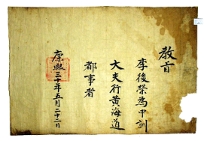 教旨
李後榮為中訓
大夫行黃海道
都事者
康熙二十年五月二十二日